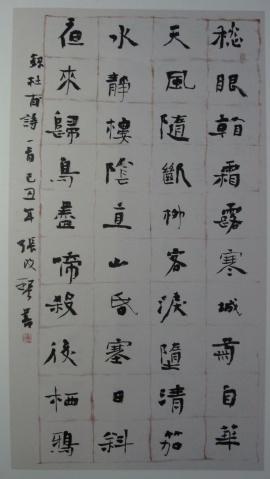 愁眼看霜露寒城菊自華
天風隨斷柳客淚墮清笳
水靜樓陰直山昏塞日斜
夜來歸鳥盡啼殺後栖鴉
錄杜甫詩一首己丑年張改琴書